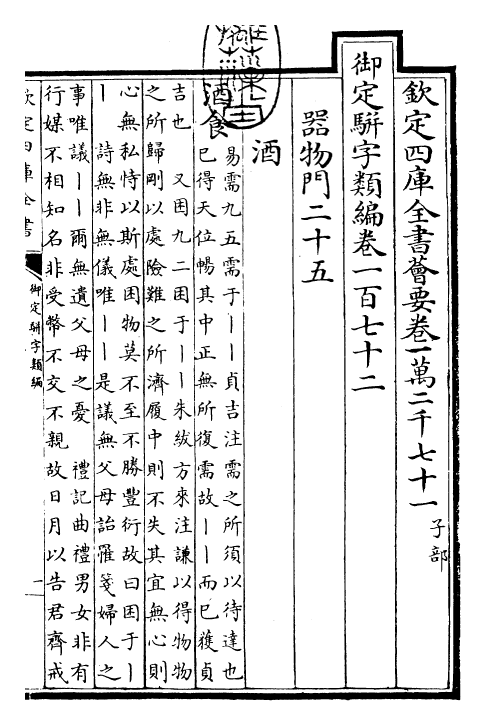 欽定四庫全書薈要卷一萬二千七十一 子部
御定駢字類編卷一百七十二
器物門二十五
酒
酒食
易需九五需于丨丨貞吉注需之所須以待達也
已得天位暢其中正無所復需故丨丨而已獲貞
吉也 又困九二困于丨丨朱紱方來注謙以得物物
之所歸剛以處險難之所濟履中則不失其宜無心則
心無私恃以斯處困物莫不至不勝豐衍故曰困于丨
丨 詩無非無儀唯丨丨是議無父母詒罹箋婦人之
事唯議丨丨爾無遺父母之憂 禮記曲禮男女非有
行媒不相知名非受幣不交不親故日月以告君齊戒
欽定四庫全書
御定駢字類編
一